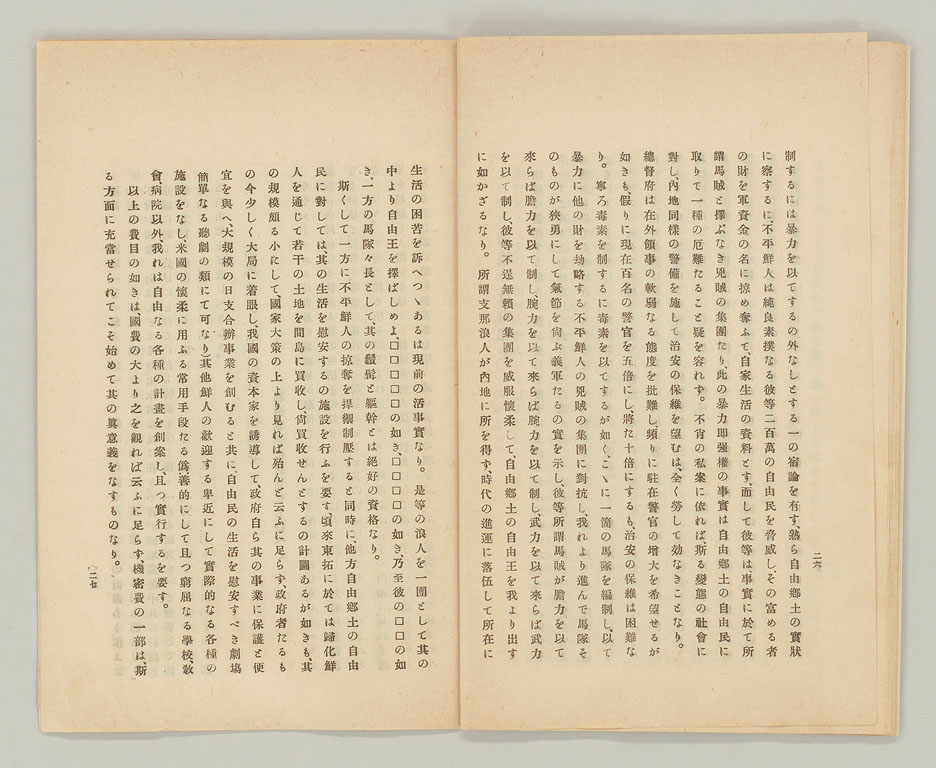 制するには暴力を以てするの外なしとする一の宿論を有す、熟ら自由鄉土の實狀
に察するに、不平鮮人は純良素撲なる彼等二百萬の自由民を脅威し、その富める者
の財を軍資金の名に掠め奪ふて、自家生活の資料とす、而して彼等は事實に於て所
謂馬賊と擇ぶなき兇賊の集團たり、此の暴力即强權の事實は自由鄉土の自由民に
取りて一種の厄難たること疑を容れず。不肖の私案に依れば、斯る變態の社會に
對し、內地同樣の警備を施して治安の保維を望むは、全く勞して効なきことなり。
總督府は在外領事の軟弱なる態度を批難し、頻りに駐在警官の增大を希望せるが
如きも、假りに現在百名の警官を五倍にし、將た十倍にするも、治安の保維は困難な
り。寧ろ毒素を制するに毒素を以てするが如く、こゝに一箇の馬隊を編制し、以て
暴力に他の財を劫略する不平鮮人の兇賊の集團に對抗し、我れより進んで馬隊そ
のものが狹勇にして氣節を尙ぶ義軍たるの實を示し、彼等所謂馬賊が膽力を以て
來らば膽力を以て制し、腕力を以て來らば腕力を以て制し、武力を以て來らば武力
を以て制し、彼等不逞無賴の集團を威服懷柔して、自由鄉土の自由王を我より出す
に如かざるなり。所謂支那浪人が內地に所を得ず、時代の進運に落伍して所在に
二六
生活の困苦を訴へつゝあるは現前の活事實なり。是等の浪人を一團として其の
中より自由王を擇ばしめよ、□□□□□の如き、□□□□の如き、乃至彼の□□□の如
き、一方の馬隊々長として、其の鬚髯と軀幹とは絕好の資格なり。
斯くして一方に不平鮮人の掠奪を捍禦制壓すると同時に、他方自由鄉土の自由
民に對しては、其の生活を慰安するの施設を行ふを要す、頃來東拓に於ては歸化鮮
人を通じて若干の土地を間島に買收し、尙買收せんとするの計圖あるが如きも、其
の規模頗る小にして國家大策の上より見れば殆んど云ふに足らず、政府者たるも
の今少しく大局に着眼し、我國の資本家を誘導して、政府自ら其の事業に保護と便
宜を與へ、大規模の日支合辦事業を創むると共に、自由民の生活を慰安すべき劇場
簡單なる聽劇の類にて可なり)其他鮮人の歡迎する卑近にして實際的なる各種の
施設をなし、米國の懷柔に用ふる常用手段たる僞善的にして且つ窮屈なる學校、敎
會、病院以外、我れは自由なる各種の計畫を創案し、且つ實行するを要す。
以上の費目の如きは國費の大より之を觀れば云ふに足らず、機密費の一部は、斯
る方面に充當せられてこそ始めて其の眞意義をなすものなり。
二七